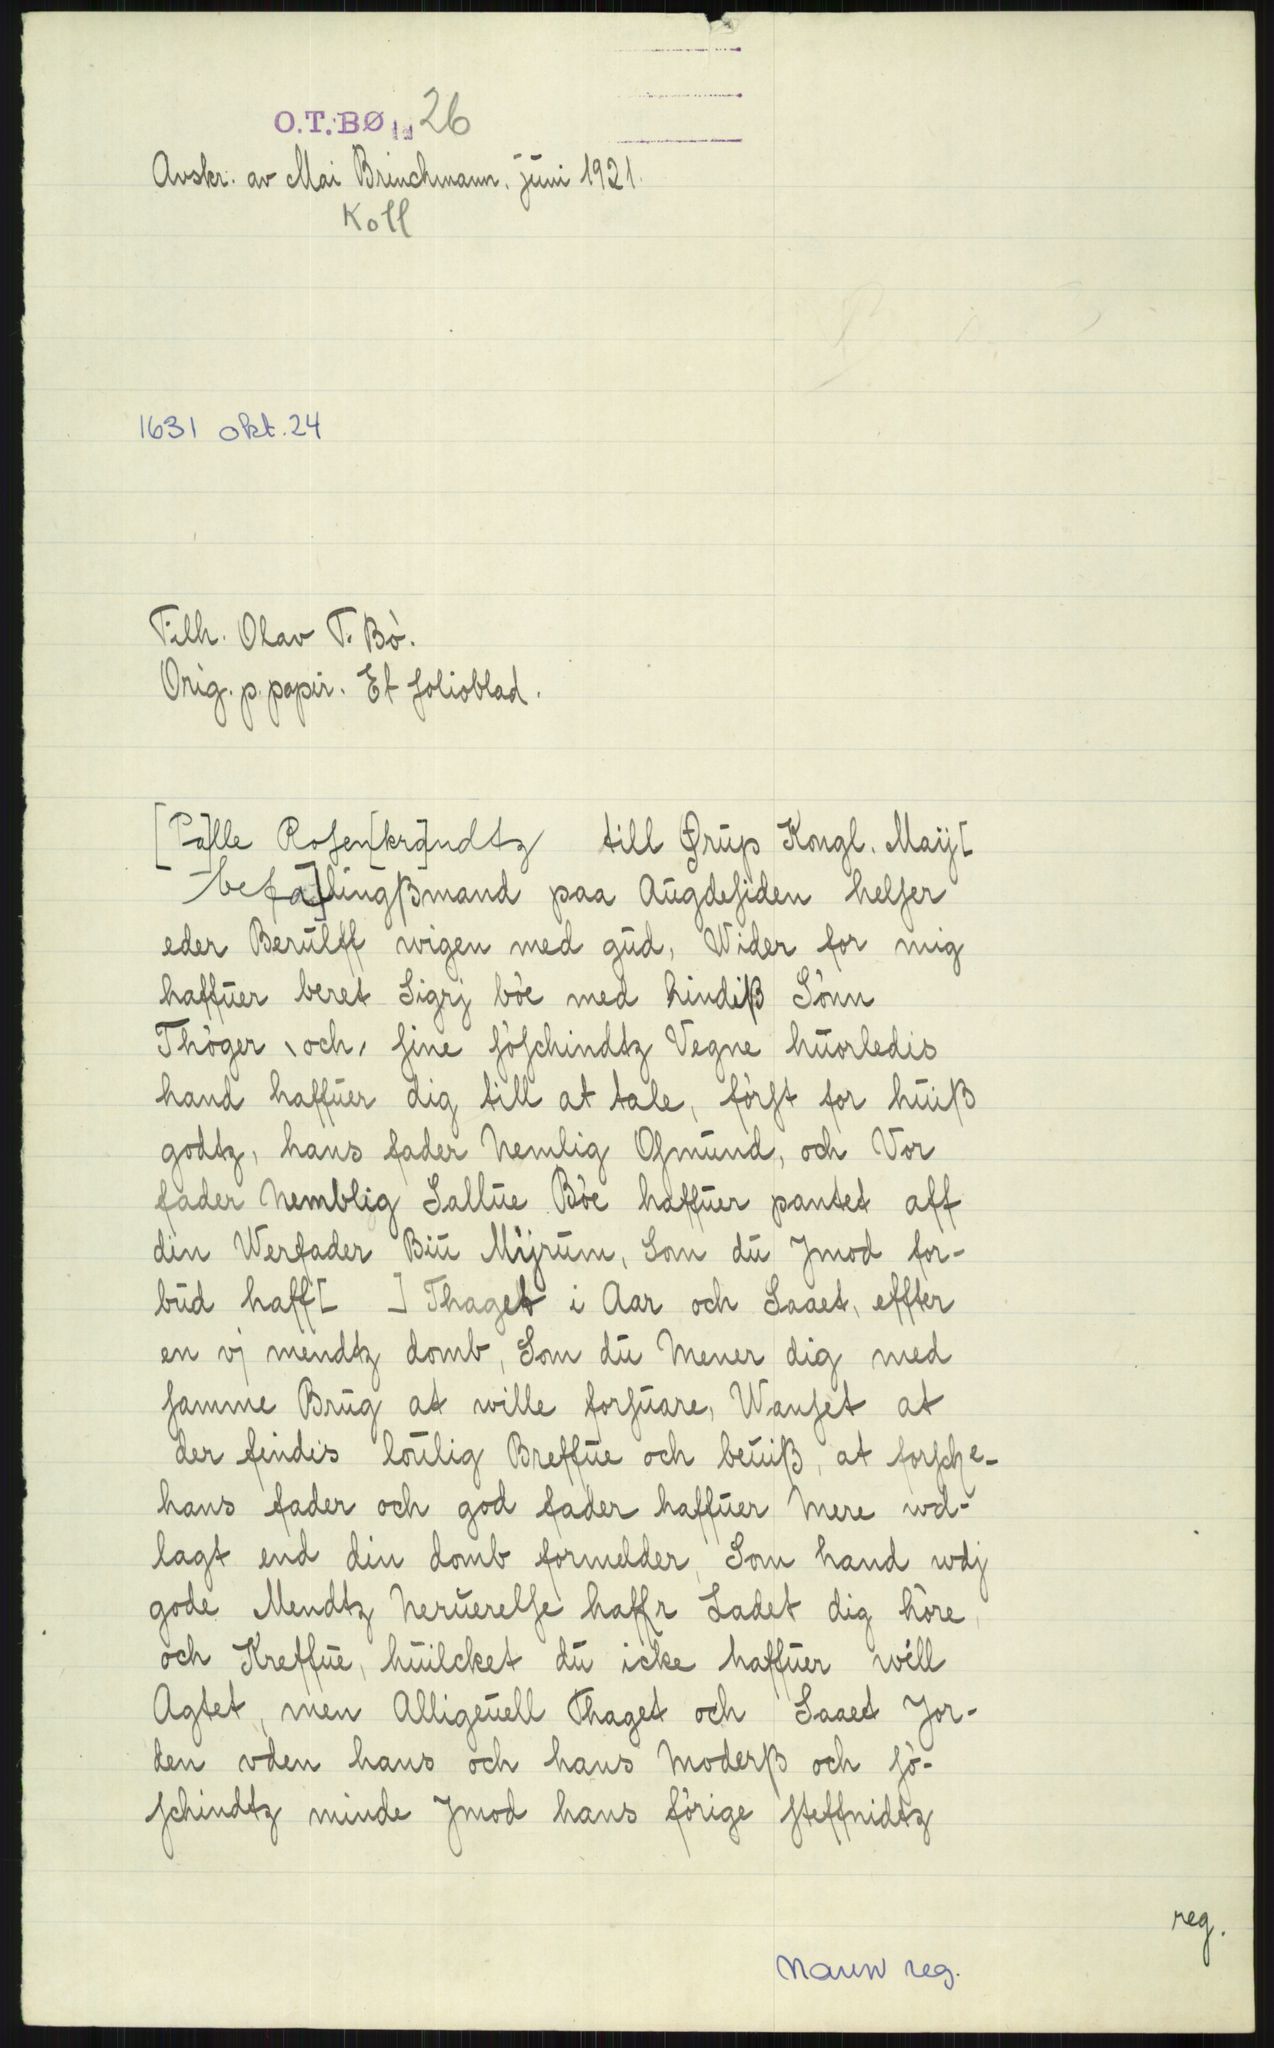 O.T. BØ 26
Avskr. av Mai Brinchmann, juni 1921.
Koll
1631 okt. 24
Tilh. Olav T. Bø.
Orig. p. papir. Et folioblad.
[Pa]lle Rosen[kra]ndtz till Ørup Kongl. Maij[
befa]lingßmand paa Augdesiden helser
eder Berulff wigen med gud, Wider for mig
haffuer beret Sigrj bòe med hindiß Sònn
Thòger \och/ sine sòschindtz Vegne huorledis
hand haffuer dig till at tale, fòrst for huiß
godtz, hans fader Nemlig Osmund, och Vor
fader Nemblig Sallue Bòe haffuer pantet aff
din Werfader Biu Mijrum, Som du Jmod for-
bud haff[ ] Thaget i Aar och Saaet, effter
en vj mendtz domb, Som du Mener dig med
samme Brug at wille forsuare, Wanset at
der findis loulig Breffue och beuiß, at forsche-
hans fader och god fader haffuer Mere wd-
lagt end din domb formelder, Som hand wdj
gode Mendtz Neruerelse haffr Ladet dig hòre,
och Kreffue, huilcket du icke haffuer wéll
Agtet, men Alligeuell Thaget och Saaet Jor-
den vden hans och hans Moderß och sò-
schindtz minde Jmod hans fòrige steffnidtz
reg.
Navn reg.